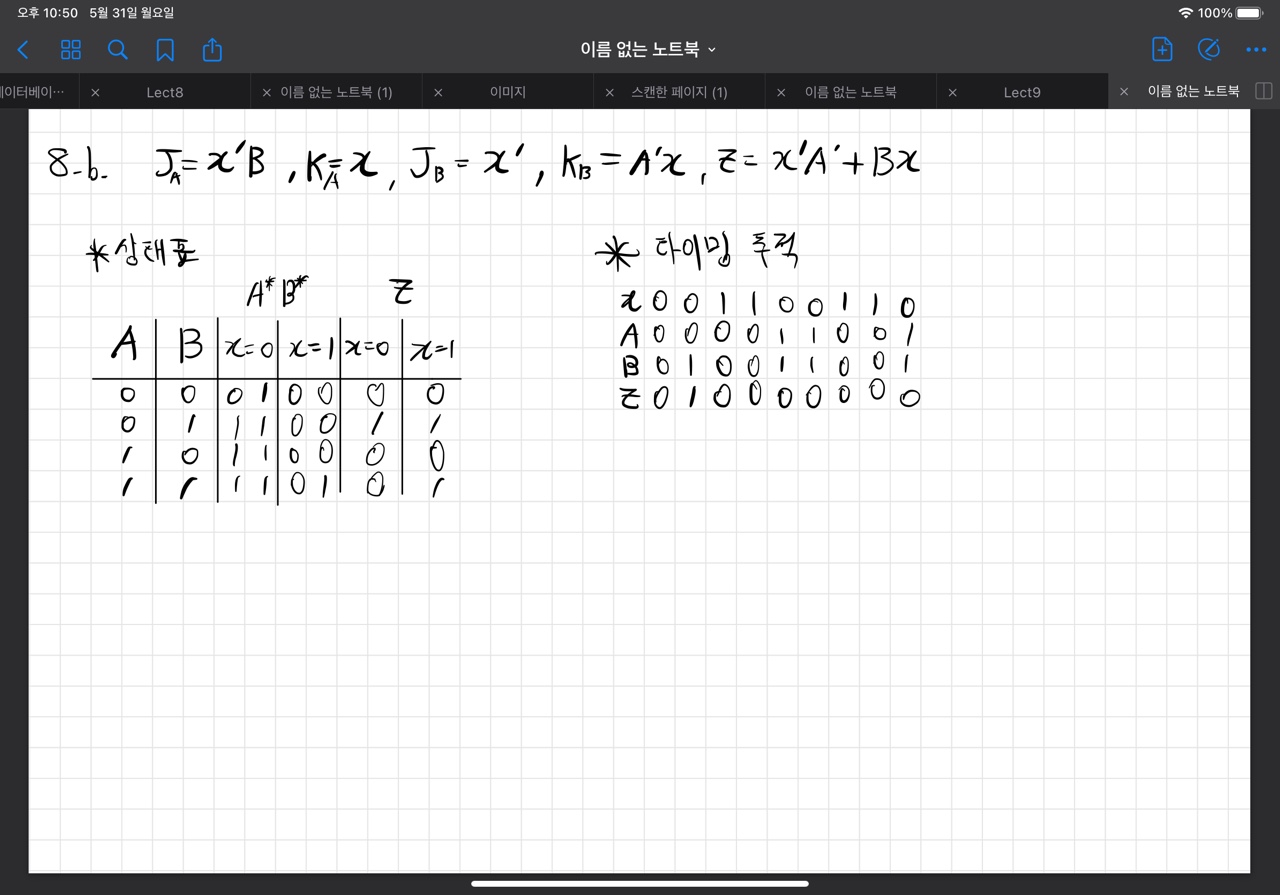 오후 10:50 5월 31일 월요일 100%
이름 없는 노트북
이터베이… × Lect8 × 이름 없는 노트북 (1) × 이미지 × 스캔한 페이지 (1) × 이름 없는 노트북 × Lect9 × 이름 없는 노트북
8-b. J_A = x'B, K_A = x, J_B = x', K_B = A'x, z = x'A' + Bx
*상태표
A* B* z
A B x=0 x=1 x=0 x=1
0 0 0 1 0 0 0 0
0 1 1 1 0 0 1 1
1 0 1 1 0 0 0 0
1 1 1 1 0 1 0 1
* 타이밍 추적
x 0 0 1 1 0 0 1 1 0
A 0 0 0 0 1 1 0 0 1
B 0 1 0 0 1 1 0 0 1
z 0 1 0 0 0 0 0 0 0